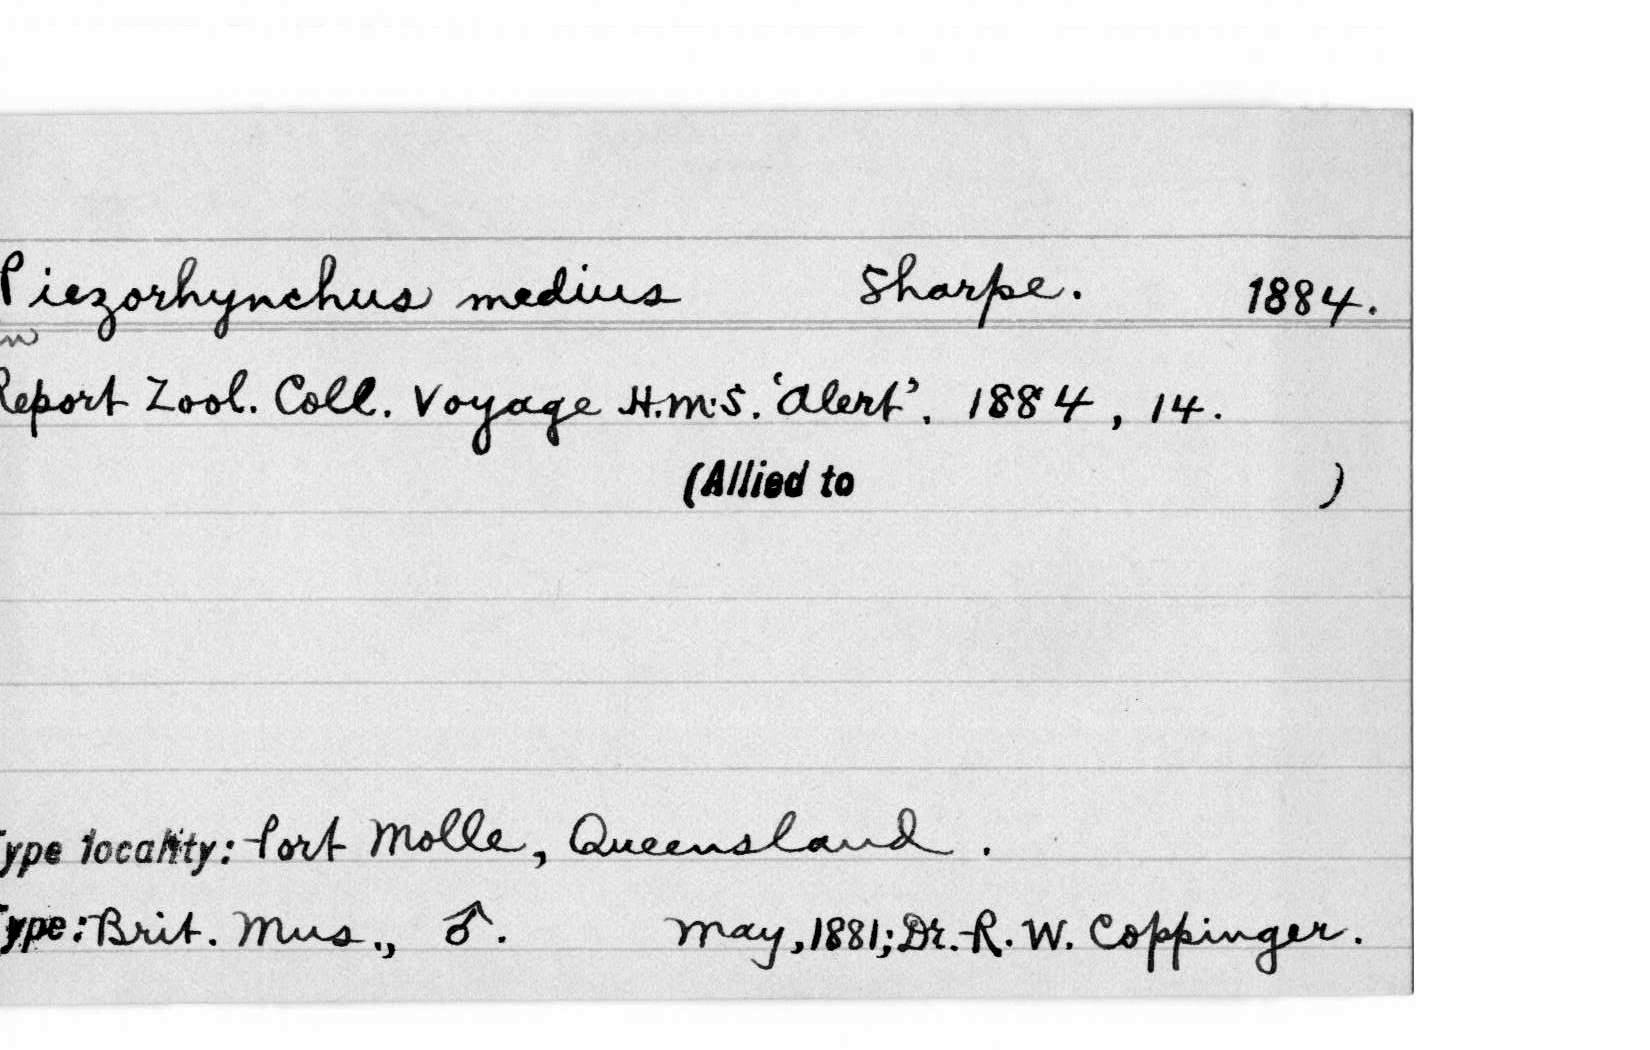 Piezorhynchus medius Sharpe. 1884.
in
Report Zool. Coll. Voyage H.M.S. 'Alert', 1884, 14.
(Allied to )
Type locality: Port Molle, Queensland.
Type: Brit. Mus., ♂. May, 1881; Dr. R. W. Coppinger.